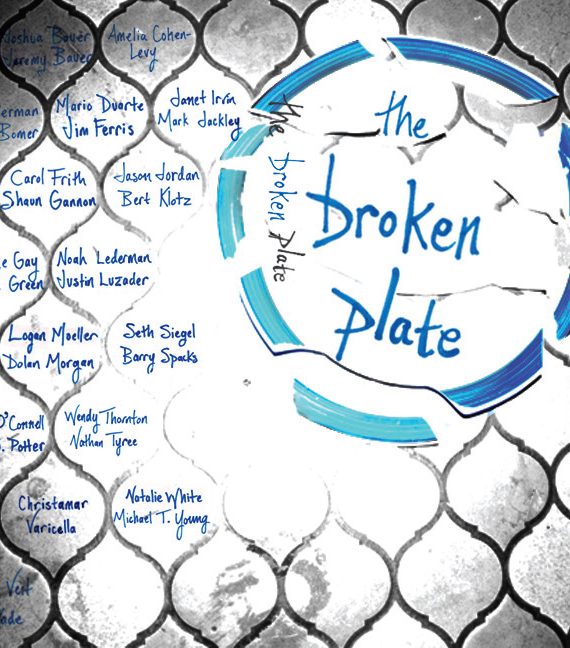 Joshua Bover
Jeremy Bauer
Amelia Cohen-
Levy
erman
Bomer
Mario Duarte
Jim Ferris
Janet Irvin
Mark Jackley
Carol Frith
Shaun Gannon
Jason Jordan
Bert Klotz
e Gay
Green
Noah Lederman
Justin Luzader
Logan Moeller
Dolan Morgan
Seth Siegel
Barry Spacks
O'Connell
. Potter
Wendy Thornton
Nathan Tyree
Christamar
Varicella
Natalie White
Michael T. Young
Veit
ade
the broken plate
the
broken
plate